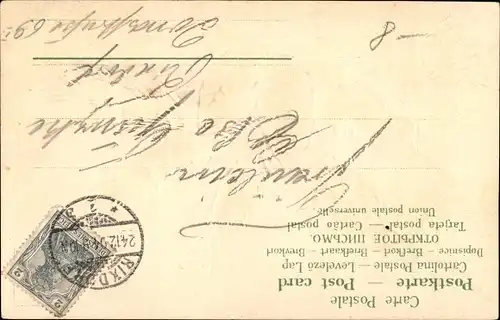 Carte Postale
Postkarte — Post card
Cartolina Postale — Levelező Lap
Dopisnice — Brefkort — Breďkaart — Brevkort
ОТКРЫТОЕ ПИСЬМО.
Tarjeta postal — Cartão postal
Union postale universelle
Fräulein
Else
Rixdorf
69
8 —
RIXDORF
24.12.
2
2